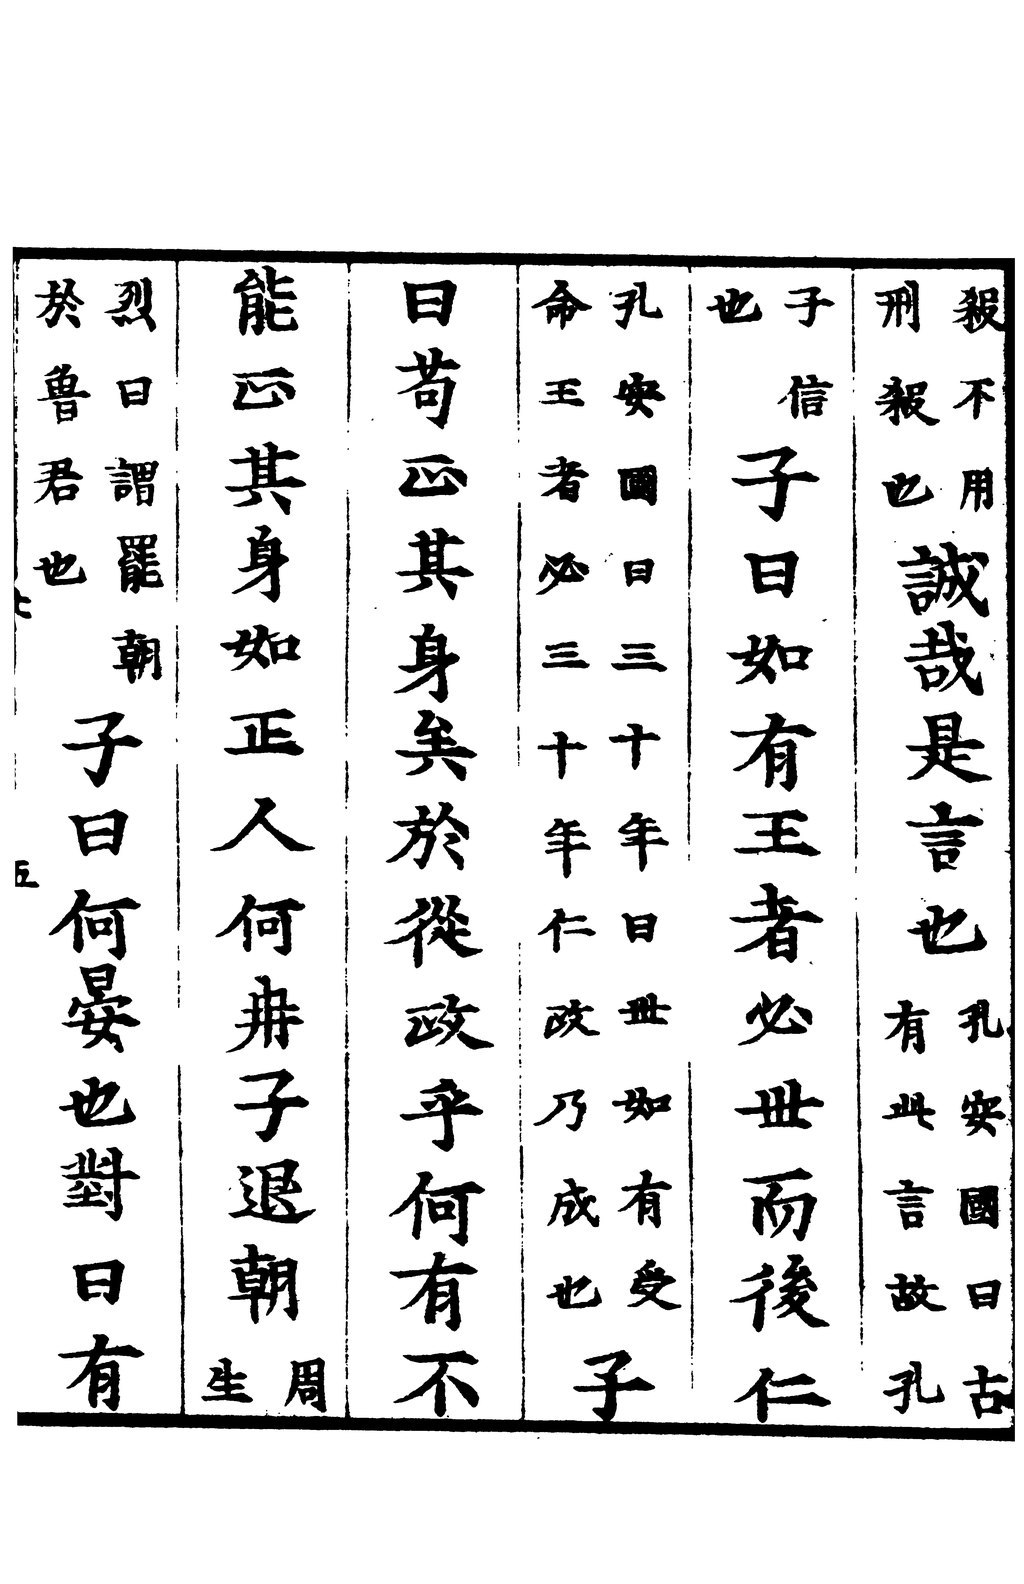 殺不用
刑殺也
誠哉是言也
孔安國曰古
有此言故孔
子信
也
子曰如有王者必丗而後仁
孔安國曰三十年曰丗如有受
命王者必三十年仁政乃成也
子
曰苟正其身矣於從政乎何有不
能正其身如正人何冉子退朝
周
生
烈曰謂罷朝
於魯君也
子曰何晏也對曰有